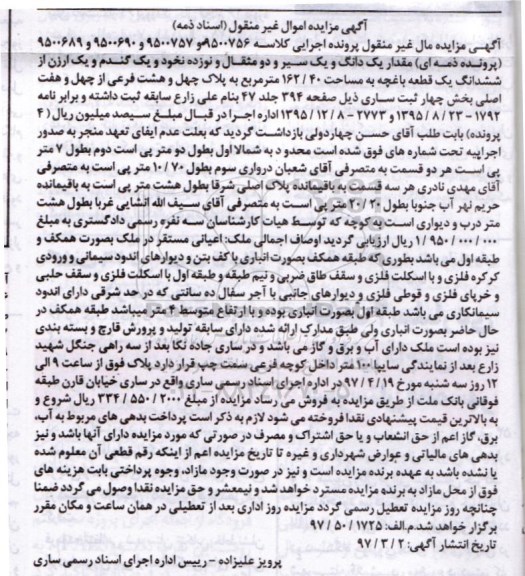 آگهی مزایده اموال غیر منقول (اسناد ذمه)
آگهی مزایده مال غیر منقول پرونده اجرایی کلاسه ۹۵۰۰۷۵۶و ۹۵۰۰۷۵۷ و ۹۵۰۰۶۹۰ و ۹۵۰۰۶۸۹
(پرونده ذمه ای) مقدار یک دانگ و یک سیر و دو مثقال و نوزده نخود و یک گندم و یک ارزن از
ششدانگ یک قطعه باغچه به مساحت ۱۶۲/۴۰ مترمربع به پلاک چهل و هشت فرعی از چهل و هفت
اصلی بخش چهار ثبت ساری ذیل صفحه ۳۹۴ جلد ۴۷ بنام علی زارع سابقه ثبت داشته و برابر نامه
۱۷۹۲ – ۱۳۹۵/۸/۲۳ و ۲۷۷۳ – ۱۳۹۵/۱۲/۸ اداره اجرا در قبال مبلغ سیصد میلیون ریال (۴
پرونده) بابت طلب آقای حسن چهاردولی بازداشت گردید که بعلت عدم ایفای تعهد منجر به صدور
اجرائیه تحت شماره های فوق شده است محدود به شمالا اول بطول دو متر پی است دوم بطول ۷ متر
پی است هر دو قسمت به متصرفی آقای شعبان درواری سوم بطول ۱۰/۷۰ متر پی است به متصرفی
آقای مهدی نادری هر سه قسمت به باقیمانده پلاک اصلی شرقا بطول هشت متر پی است به باقیمانده
حریم نهر آب جنوبا بطول ۲۰/۲۰ متر پی است به متصرفی آقای سیف الله انشایی غربا بطول هشت
متر درب و دیواری است به کوچه که توسط هیات کارشناسان سه نفره رسمی دادگستری به مبلغ
۱/۹۵۰/۰۰۰/۰۰۰ ریال ارزیابی گردید اوصاف اجمالی ملک: اعیانی مستقر در ملک بصورت همکف و
طبقه اول می باشد بطوری که طبقه همکف بصورت انباری با کف بتن و دیوارهای اندود سیمانی و ورودی
کرکره فلزی و با اسکلت فلزی و سقف طاق ضربی و نیم طبقه و طبقه اول با اسکلت فلزی و سقف حلبی
و خرپای فلزی و قوطی فلزی و دیوارهای جانبی با آجر سفال ده سانتی که در حد شرقی دارای اندود
سیمانکاری می باشد طبقه اول بصورت انباری بوده و با ارتفاع متوسط ۴ متر میباشد طبقه همکف در
حال حاضر بصورت انباری ولی طبق مدارک ارائه شده دارای سابقه تولید و پرورش قارچ و بسته بندی
نیز بوده است ملک دارای آب و برق و گاز می باشد و در ساری جاده نکا بعد از سه راهی جنگل شهید
زارع بعد از نمایندگی سایپا ۱۰۰ متر داخل کوچه فرعی سمت چپ قرار دارد پلاک فوق از ساعت ۹ الی
۱۲ روز سه شنبه مورخ ۹۷/۴/۱۹ در اداره اجرای اسناد رسمی ساری واقع در ساری خیابان قارن طبقه
فوقانی بانک ملت از طریق مزایده به فروش می رساد مزایده از مبلغ ۲۳۴/۵۵۰/۲۰۰۰ ریال شروع و
به بالاترین قیمت پیشنهادی نقدا فروخته می شود لازم به ذکر است پرداخت بدهی های مربوط به آب،
برق، گاز اعم از حق انشعاب و یا حق اشتراک و مصرف در صورتی که مورد مزایده دارای آنها باشد و نیز
بدهی های مالیاتی و عوارض شهرداری و غیره تا تاریخ مزایده اعم از اینکه رقم قطعی آن معلوم شده
یا نشده باشد به عهده برنده مزایده است و نیز در صورت وجود مازاد، وجوه پرداختی بابت هزینه های
فوق از محل مازاد به برنده مزایده مسترد خواهد شد و نیمعشر و حق مزایده نقدا وصول می گردد ضمنا
چنانچه روز مزایده تعطیل رسمی گردد مزایده روز اداری بعد از تعطیلی در همان ساعت و مکان مقرر
برگزار خواهد شد.م.الف: ۹۷/۵۰/۱۷۲۵
تاریخ انتشار آگهی: ۹۷/۳/۲
پرویز علیزاده – رییس اداره اجرای اسناد رسمی ساری